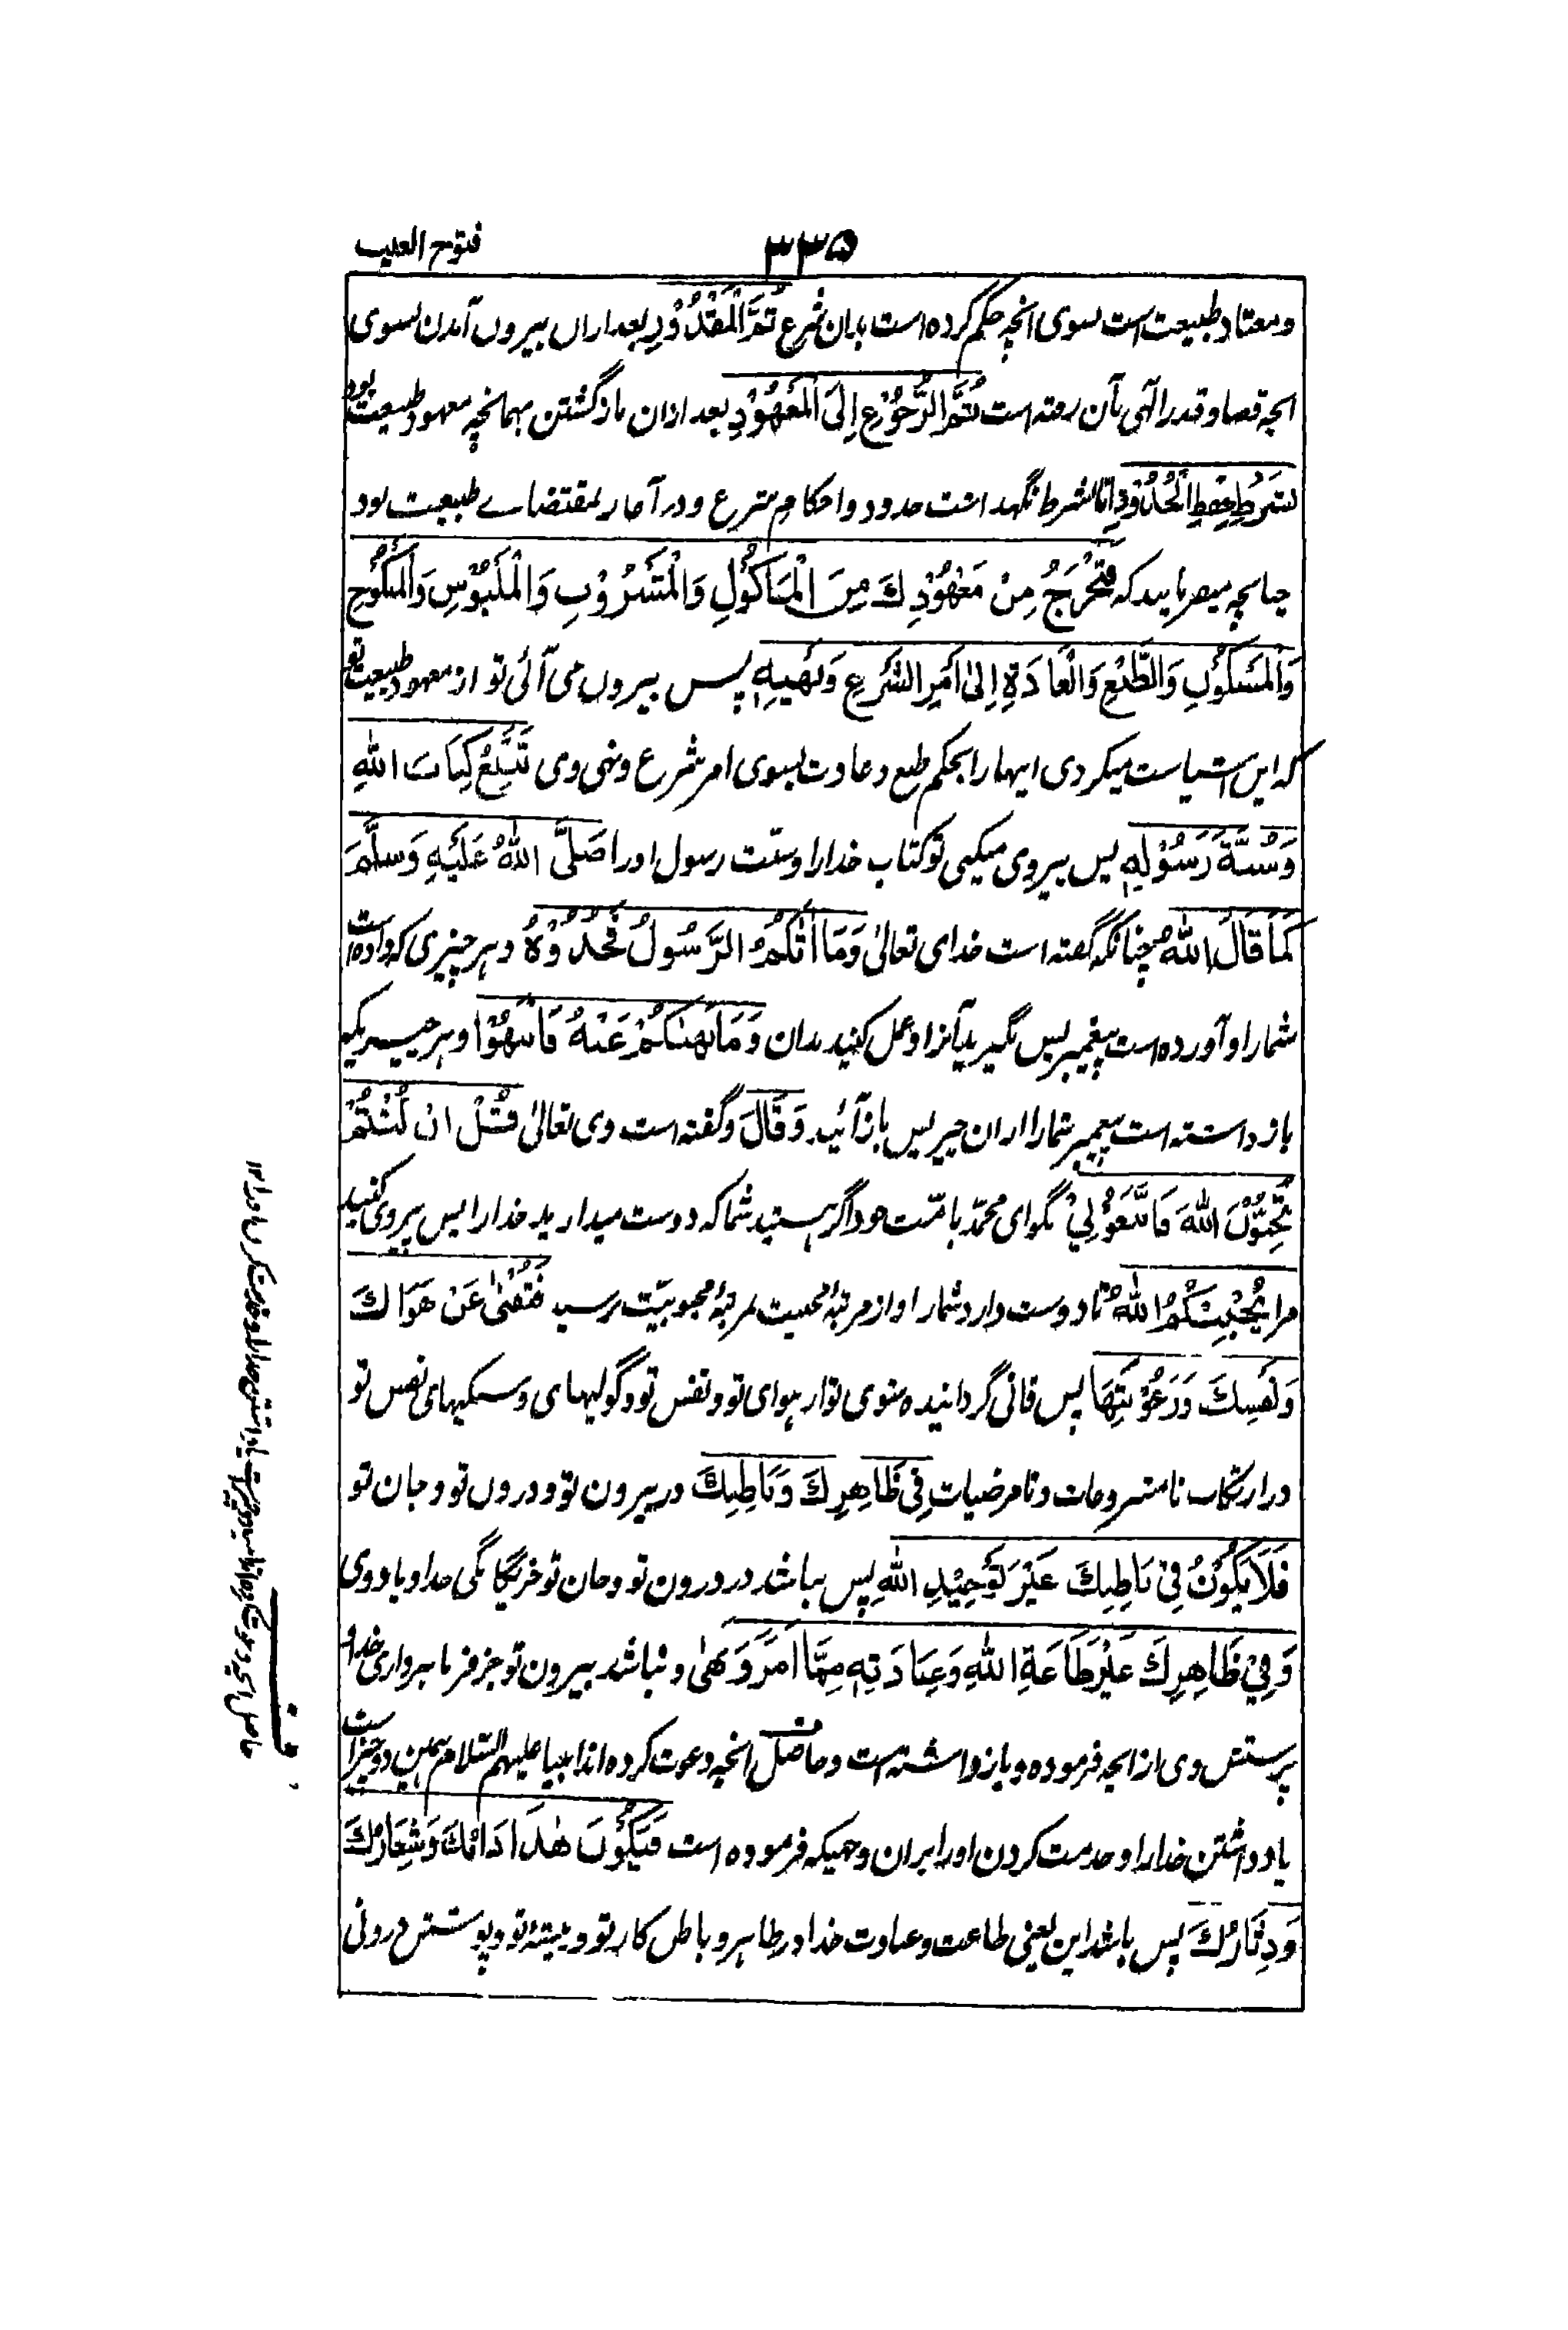 ۳۳۵
فتوح الغیب
و معتاد طبیعت است بسوی آنچه حکم کرده است بدان شرع ثُمَّ الْمَقْدُوْرِ بعد ازاں بیروں آمدن بسوی
آنچه قضا و قدر الٓهی بآن رفته است ثُمَّ الرُّجُوْعِ اِلَی الْمَعْهُوْدِ بعد ازان بازگشتن بهمانچه معهود طبیعت بود
بِشَرْطِ حِفْظِ الْحُدُوْدِ امّا بشرط نگهداشت حدود و احکام شرع و در آخر بمقتضاے طبیعت بود
چنانچه میفرمایند که فَتَخْرُجُ مِنْ مَعْهُوْدِكَ مِنَ الْمَاْكُوْلِ وَالْمَشْرُوْبِ وَالْمَلْبُوْسِ وَالْمَنْكُوْحِ
وَالْمَسْكُوْنِ وَالطَّبْعِ وَالْعَادَةِ اِلٰى اَمْرِ الشَّرْعِ وَنَهْيِهٖ پس بیروں می آئی تو از معهود طبیعت تو
که این است سیاست میکردی اینها را بحکم طبع و عادت بسوی امر شرع و نهی وی تَتَّبِعُ كِتَابَ اللهِ
وَسُنَّةَ رَسُوْلِهٖ پس پیروی میکنی تو کتاب خدا را و سنّت رسول او را صَلَّى اللهُ عَلَيْهِ وَسَلَّمَ
كَمَا قَالَ اللهُ چنانکه گفته است خدای تعالیٰ وَمَا اٰتٰكُمُ الرَّسُوْلُ فَخُذُوْهُ و هر چیزی که داده است
شما را و آورده است پیغمبر پس بگیرید آنرا و عمل کنید بدان وَمَا نَهٰىكُمْ عَنْهُ فَانْتَهُوْا و هر چیزیکه
باز داشته است پیغمبر شما را ازان چیز پس باز آئید وَقَالَ و گفته است وی تعالیٰ قُلْ اِنْ كُنْتُمْ
تُحِبُّوْنَ اللهَ فَاتَّبِعُوْنِيْ بگو ای محمّد بامّت خود اگر هستید شما که دوست میدارید خدا را پس پیروی کنید
مرا يُحْبِبْكُمُ اللهُ تا دوست دارد شما را و از مرتبۂ محبیت بمرتبۂ محبوبیّت برسید فَتُفْنٰى عَنْ هَوَاكَ
وَنَفْسِكَ وَرُعُوْنَتِهَا پس فانی گردانیده شوی تو از هوای تو و نفس تو و گولیهای و سبکیهای نفس تو
در ارتکاب نامشروعات و نامرضیات فِيْ ظَاهِرِكَ وَبَاطِنِكَ در بیرون تو و دروں تو و جان تو
فَلَا يَكُوْنُ فِيْ بَاطِنِكَ غَيْرَ تَوْحِيْدِ اللهِ پس نباشد در درون تو و جان تو جز یگانگی خدا و یاد وی
وَفِيْ ظَاهِرِكَ غَيْرَ طَاعَةِ اللهِ وَعِبَادَتِهٖ مِمَّا اَمَرَ وَنَهٰى و نباشد بیرون تو جز فرمانبرداری خدا و
پرستش وی از انچه فرموده و باز داشته است و حاصل انچه دعوت کرده اند انبیا علیهم السّلام همین دو چیز است
یاد داشتن خدا را و خدمت کردن او را بران وجهیکه فرموده است فَيَكُوْنُ هٰذَا دَأْبَكَ وَشِعَارَكَ
وَدِثَارَكَ پس باشد این یعنی طاعت و عبادت خدا در ظاهر و باطن کار تو و پیشۂ تو و پوشش درونی